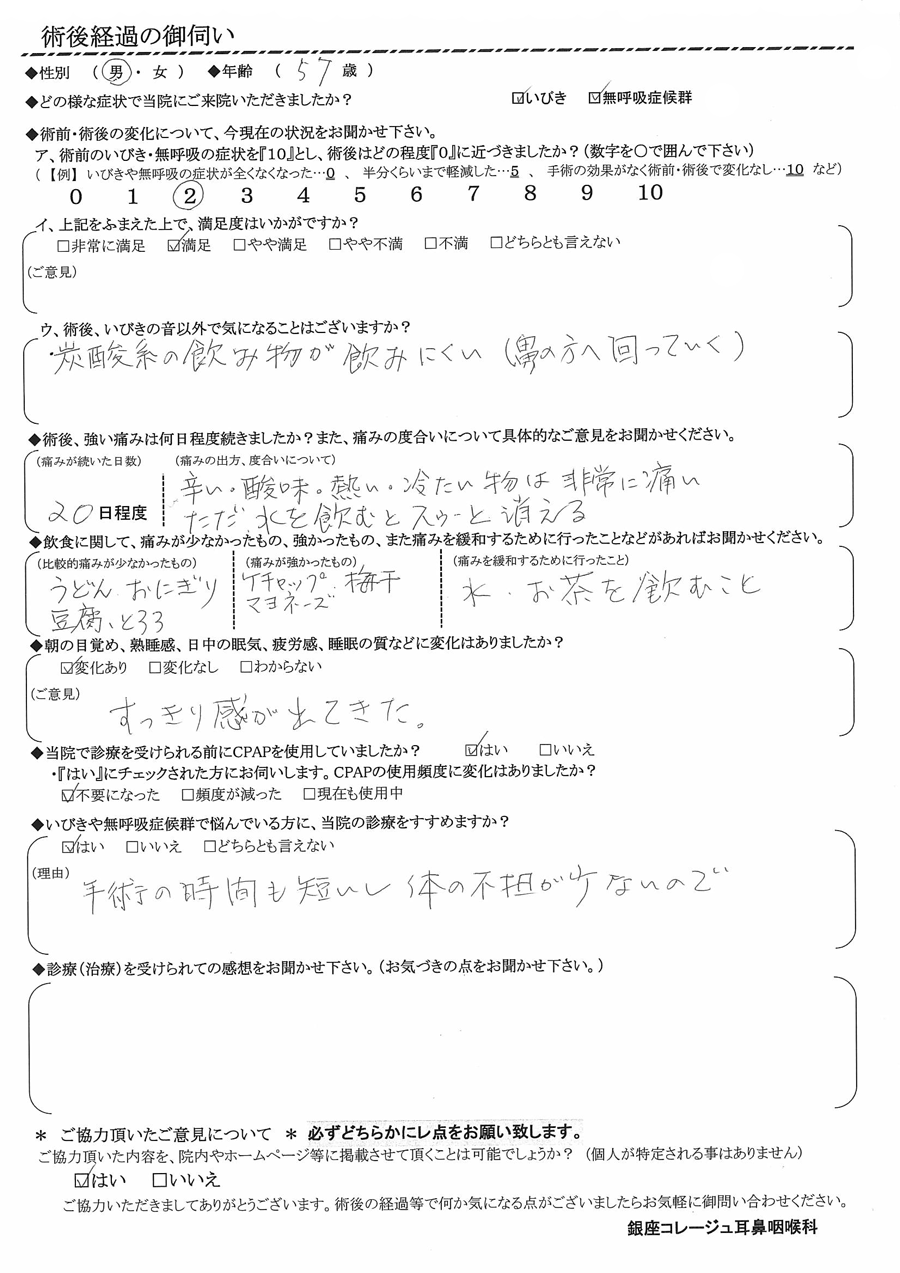 術後経過の御伺い
◆性別 （ 男 ・ 女 ） ◆年齢 （ 57 歳 ）
◆どの様な症状で当院にご来院いただきましたか？ ☑いびき ☑無呼吸症候群
◆術前・術後の変化について、今現在の状況をお聞かせ下さい。
ア、術前のいびき・無呼吸の症状を『10』とし、術後はどの程度『0』に近づきましたか？（数字を○で囲んで下さい）
（ 【例】 いびきや無呼吸の症状が全くなくなった…0 、 半分くらいまで軽減した…5 、 手術の効果がなく術前・術後で変化なし…10 など）
0 1 2 3 4 5 6 7 8 9 10
イ、上記をふまえた上で、満足度はいかがですか？
□非常に満足 ☑満足 □やや満足 □やや不満 □不満 □どちらとも言えない
（ご意見）
ウ、術後、いびきの音以外で気になることはございますか？
・炭酸系の飲み物が飲みにくい（鼻の方へ回っていく）
◆術後、強い痛みは何日程度続きましたか？また、痛みの度合いについて具体的なご意見をお聞かせください。
（痛みが続いた日数） （痛みの出方、度合いについて）
辛い・酸味。熱い・冷たい物は非常に痛い
20日程度 ただ水を飲むとスゥーと消える
◆飲食に関して、痛みが少なかったもの、強かったもの、また痛みを緩和するために行ったことなどがあればお聞かせください。
（比較的痛みが少なかったもの） （痛みが強かったもの） （痛みを緩和するために行ったこと）
うどん おにぎり ケチャップ 梅干 水・お茶を飲むこと
豆腐、とろろ マヨネーズ
◆朝の目覚め、熟睡感、日中の眠気、疲労感、睡眠の質などに変化はありましたか？
☑変化あり □変化なし □わからない
（ご意見）
すっきり感が出てきた。
◆当院で診療を受けられる前にCPAPを使用していましたか？ ☑はい □いいえ
・『はい』にチェックされた方にお伺いします。CPAPの使用頻度に変化はありましたか？
☑不要になった □頻度が減った □現在も使用中
◆いびきや無呼吸症候群で悩んでいる方に、当院の診療をすすめますか？
☑はい □いいえ □どちらとも言えない
（理由）
手術の時間も短いし体の不担が少ないので
◆診療（治療）を受けられての感想をお聞かせ下さい。（お気づきの点をお聞かせ下さい。）
＊ ご協力頂いたご意見について ＊ 必ずどちらかにレ点をお願い致します。
ご協力頂いた内容を、院内やホームページ等に掲載させて頂くことは可能でしょうか？ （個人が特定される事はありません）
☑はい □いいえ
ご協力いただきましてありがとうございます。術後の経過等で何か気になる点がございましたらお気軽に御問い合わせください。
銀座コレージュ耳鼻咽喉科